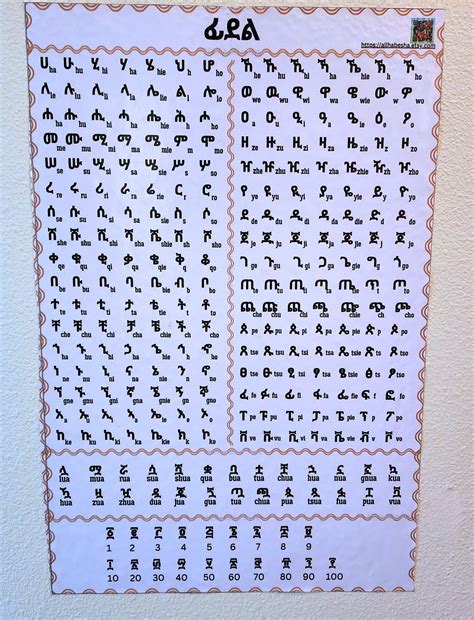 ፊደል
https://allhabesha.etsy.com
ሀ ha ሁ hu ሂ hi ሃ ha ሄ hie ህ h ሆ ho
ለ le ሉ lu ሊ li ላ la ሌ lie ል l ሎ lo
ሐ ha ሑ hu ሒ hi ሓ ha ሔ hie ሕ h ሖ ho
መ me ሙ mu ሚ mi ማ ma ሜ mie ም m ሞ mo
ሠ se ሡ su ሢ si ሣ sa ሤ sie ሥ s ሦ so
ረ re ሩ ru ሪ ri ራ ra ሬ rie ር r ሮ ro
ሰ se ሱ su ሲ si ሳ sa ሴ sie ስ s ሶ so
ሸ she ሹ shu ሺ shi ሻ sha ሼ shie ሽ sh ሾ sho
ቀ qe ቁ qu ቂ qi ቃ qa ቄ qie ቅ q ቆ qo
በ be ቡ bu ቢ bi ባ ba ቤ bie ብ b ቦ bo
ተ te ቱ tu ቲ ti ታ ta ቴ tie ት t ቶ to
ቸ che ቹ chu ቺ chi ቻ cha ቼ chie ች ch ቾ cho
ኀ ha ኁ hu ኂ hi ኃ ha ኄ hie ኅ h ኆ ho
ነ ne ኑ nu ኒ ni ና na ኔ nie ን n ኖ no
ኘ gne ኙ gnu ኚ gni ኛ gna ኜ gnie ኝ gn ኞ gno
አ a ኡ u ኢ i ኣ a ኤ ie እ e ኦ o
ከ ke ኩ ku ኪ ki ካ ka ኬ kie ክ k ኮ ko
ኸ he ኹ hu ኺ hi ኻ ha ኼ hie ኽ h ኾ ho
ወ we ዉ wu ዊ wi ዋ wa ዌ wie ው w ዎ wo
ዐ a ዑ u ዒ i ዓ a ዔ ie ዕ e ዖ o
ዘ ze ዙ zu ዚ zi ዛ za ዜ zie ዝ z ዞ zo
ዠ zhe ዡ zhu ዢ zhi ዣ zha ዤ zhie ዥ zh ዦ zho
የ ye ዩ yu ዪ yi ያ ya ዬ yie ይ y ዮ yo
ደ de ዱ du ዲ di ዳ da ዴ die ድ d ዶ do
ጀ je ጁ ju ጂ ji ጃ ja ጄ jie ጅ j ጆ jo
ገ ge ጉ gu ጊ gi ጋ ga ጌ gie ግ g ጎ go
ጠ te ጡ tu ጢ ti ጣ ta ጤ tie ጥ t ጦ to
ጨ che ጩ chu ጪ chi ጫ cha ጬ chie ጭ ch ጮ cho
ጰ pe ጱ pu ጲ pi ጳ pa ጴ pie ጵ p ጶ po
ጸ tse ጹ tsu ጺ tsi ጻ tsa ጼ tsie ጽ ts ጾ tso
ፀ tse ፁ tsu ፂ tsi ፃ tsa ፄ tsie ፅ ts ፆ tso
ፈ fe ፉ fu ፊ fi ፋ fa ፌ fie ፍ f ፎ fo
ፐ pe ፑ pu ፒ pi ፓ pa ፔ pie ፕ p ፖ po
ቨ ve ቩ vu ቪ vi ቫ va ቬ vie ቭ v ቮ vo
ሏ ሟ ሯ ሷ ሿ ቋ ቧ ቷ ቿ ኗ ኟ ኳ
lua mua rua sua shua qua bua tua chua nua gnua kua
ዃ ዟ ዧ ዷ ጇ ጓ ጧ ጯ ጷ ጿ ፏ ፗ ቯ
hua zua zhua dua jua gua tua chua pua tsua fua pua vua
፩ ፪ ፫ ፬ ፭ ፮ ፯ ፰ ፱
1 2 3 4 5 6 7 8 9
፲ ፳ ፴ ፵ ፶ ፷ ፸ ፹ ፺ ፻
10 20 30 40 50 60 70 80 90 100